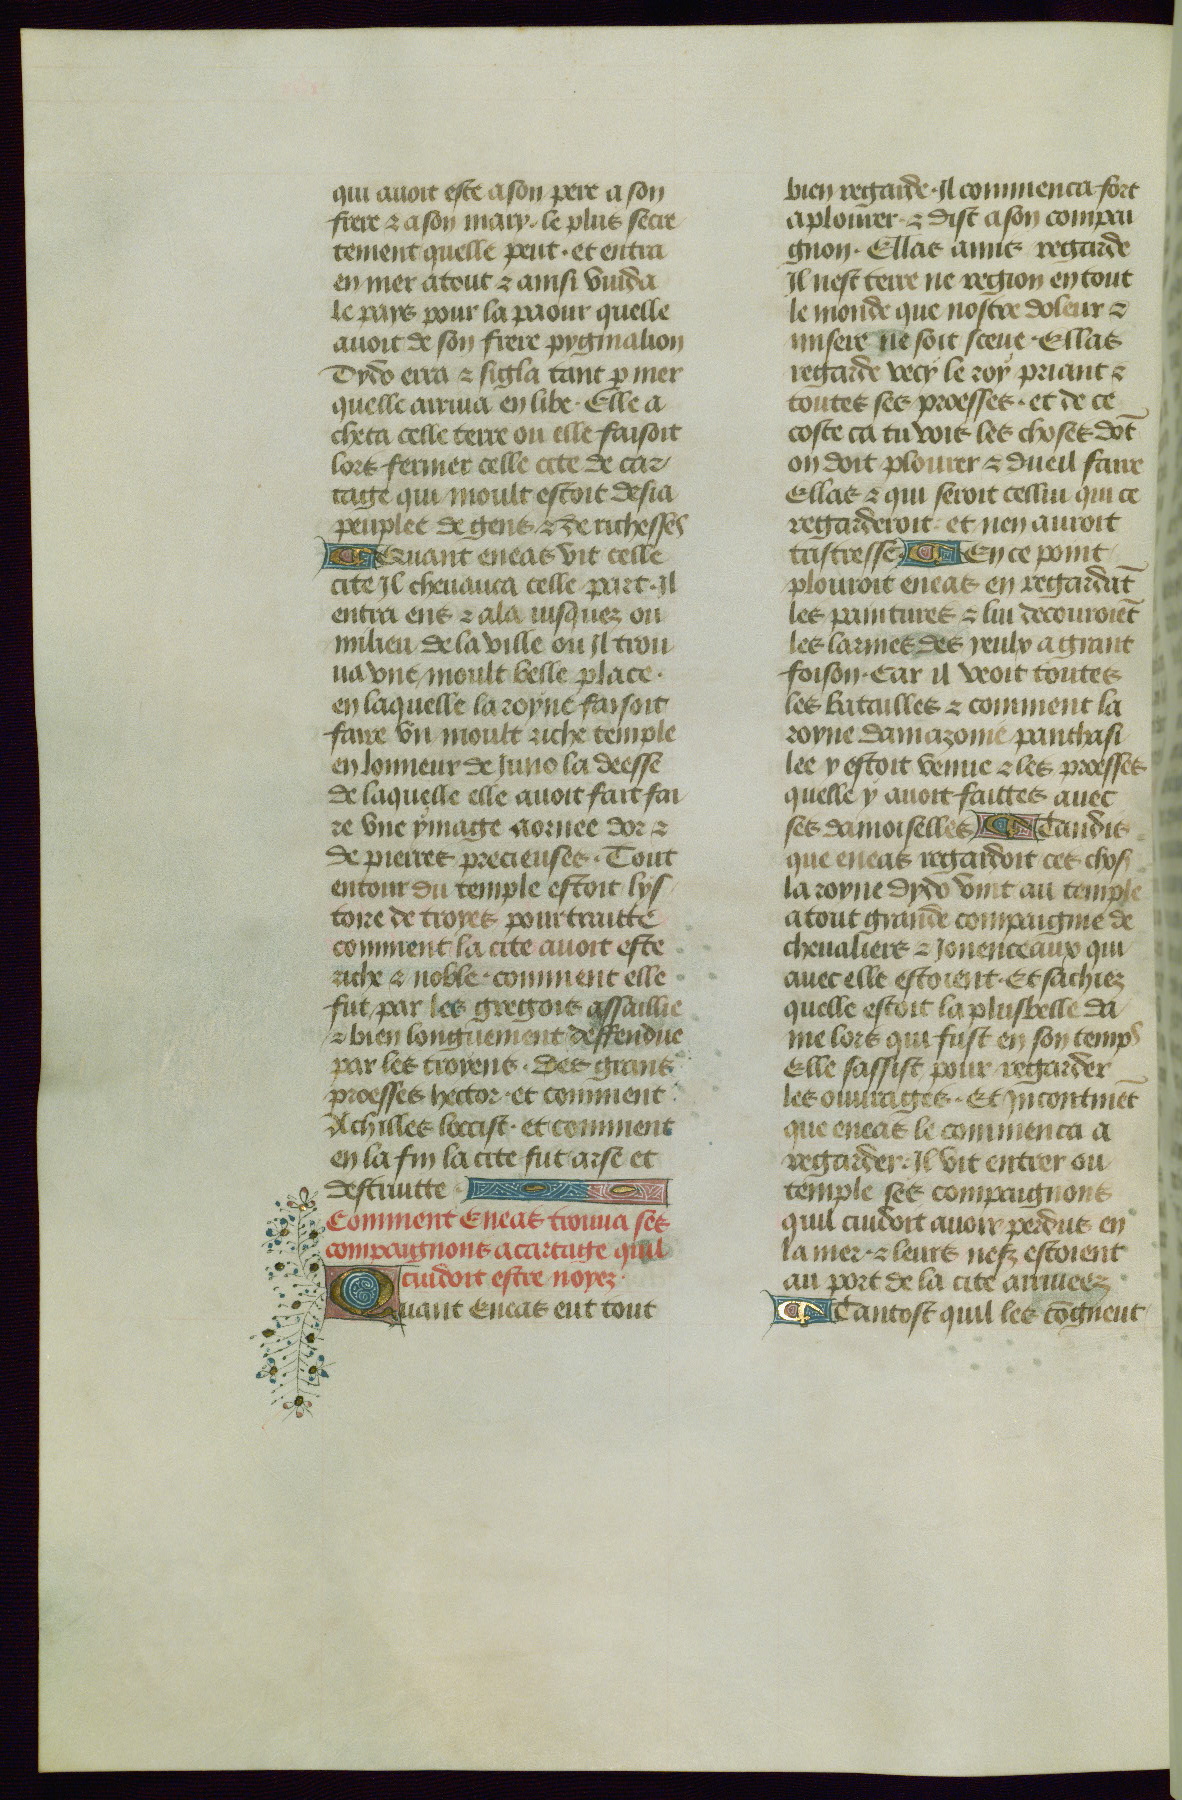 qui auoit este a son pere a son
frere ⁊ a son mary. le plus secre
tement quelle peut. et entra
en mer atout ⁊ ainsi vuida
le pays pour la paour quelle
auoit de son frere pygmalion
Dydo erra ⁊ sigla tant p mer
quelle arriua en libe. Elle a
cheta celle terre ou elle faisoit
lors fermer celle cite de car
tage qui moult estoit desia
peuplee de gens ⁊ de richesses
Quant eneas vit celle
cite Il cheuauca celle part. Il
entra ens ⁊ ala iusquez ou
milieu de la ville ou Il trou
ua vne moult belle place.
en laquelle la royne faisoit
faire vn moult riche temple
en lonneur de Juno la deesse
de laquelle elle auoit fait fai
re vne ymage aornee dor ⁊
de pierres precieuses. Tout
entour du temple estoit lys
toire de troyes pourtraitte
comment la cite auoit este
riche ⁊ noble. comment elle
fut par les gregois assaillie
⁊ bien longuement deffendue
par les troyens. Des grans
proesses hector. et comment
Achilles loccist. et comment
en la fin la cite fut arse et
destruitte
Comment Eneas trouua ses
compaignons a cartage quil
cuidoit estre noyez.
Quant Eneas eut tout
bien regarde. Il commenca fort
a plourer. ⁊ dist a son compai
gnon. Ellas amis regarde
Il nest terre ne region en tout
le monde que nostre doleur ⁊
misere ne soit sceue. Ellas
regarde vecy le roy priant ⁊
toutes ses proesses. et de ce
coste ca tu vois les choses dōt
on doit plourer ⁊ dueil faire
Ellas ⁊ qui seroit cellui qui ce
regarderoit. et nen auroit
tristresse En ce point
plouroit eneas en regardāt
les paintures ⁊ lui decouroiēt
les larmes des yeulx a grant
foison. Car il veoit toutes
les batailles ⁊ comment la
royne damazonie panthasi
lee y estoit venue ⁊ les proesses
quelle y auoit faittes auec
ses damoiselles Tandis
que eneas regardoit ces chos
la royne dydo vint au temple
atout grande compaignie de
cheualiers ⁊ Jouenceaux qui
auec elle estoient. Et sachiez
quelle estoit la plus belle da
me lors qui fust en son temps
Elle sassist pour regarder
les ouurages. Et Incontinēt
que eneas le commenca a
regarder. Il vit entrer ou
temple ses compaignons
quil cuidoit auoir perdus en
la mer. ⁊ leurs nefz estoient
au port de la cite arriueez.
Tantost quil les cōgneut